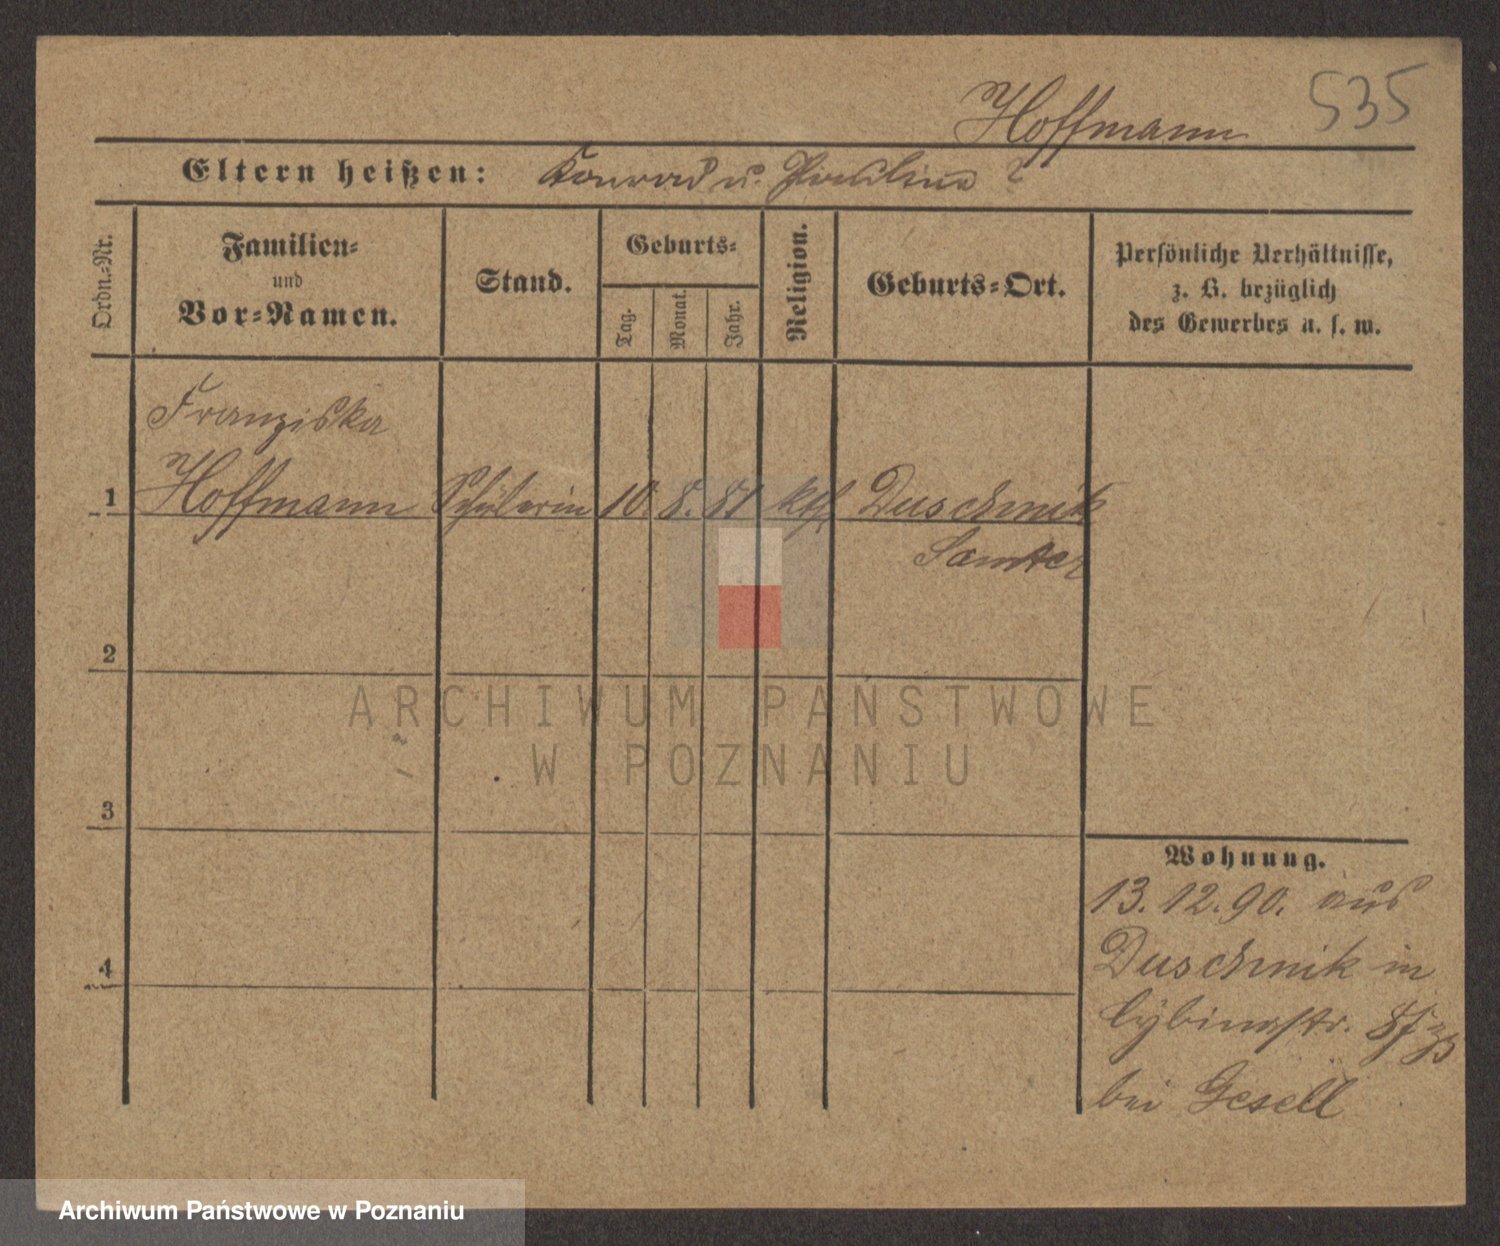 Hoffmann 535
Eltern heißen: Konrad u. Pauline ?
Ordn.-Nr.
Familien-
und
Vor-Namen.
Stand.
Geburts-
Tag.
Monat.
Jahr.
Religion.
Geburts-Ort.
Persönliche Verhältnisse,
z. B. bezüglich
des Gewerbes u. s. w.
Franziska
1 Hoffmann Schülerin 10. 8. 81 kth Duschnik
Samter
2
3
4
Wohnung.
13. 12. 90. aus
Duschnik in
Cybinastr.
bei Gesell
ARCHIWUM PAŃSTWOWE
W POZNANIU
Archiwum Państwowe w Poznaniu